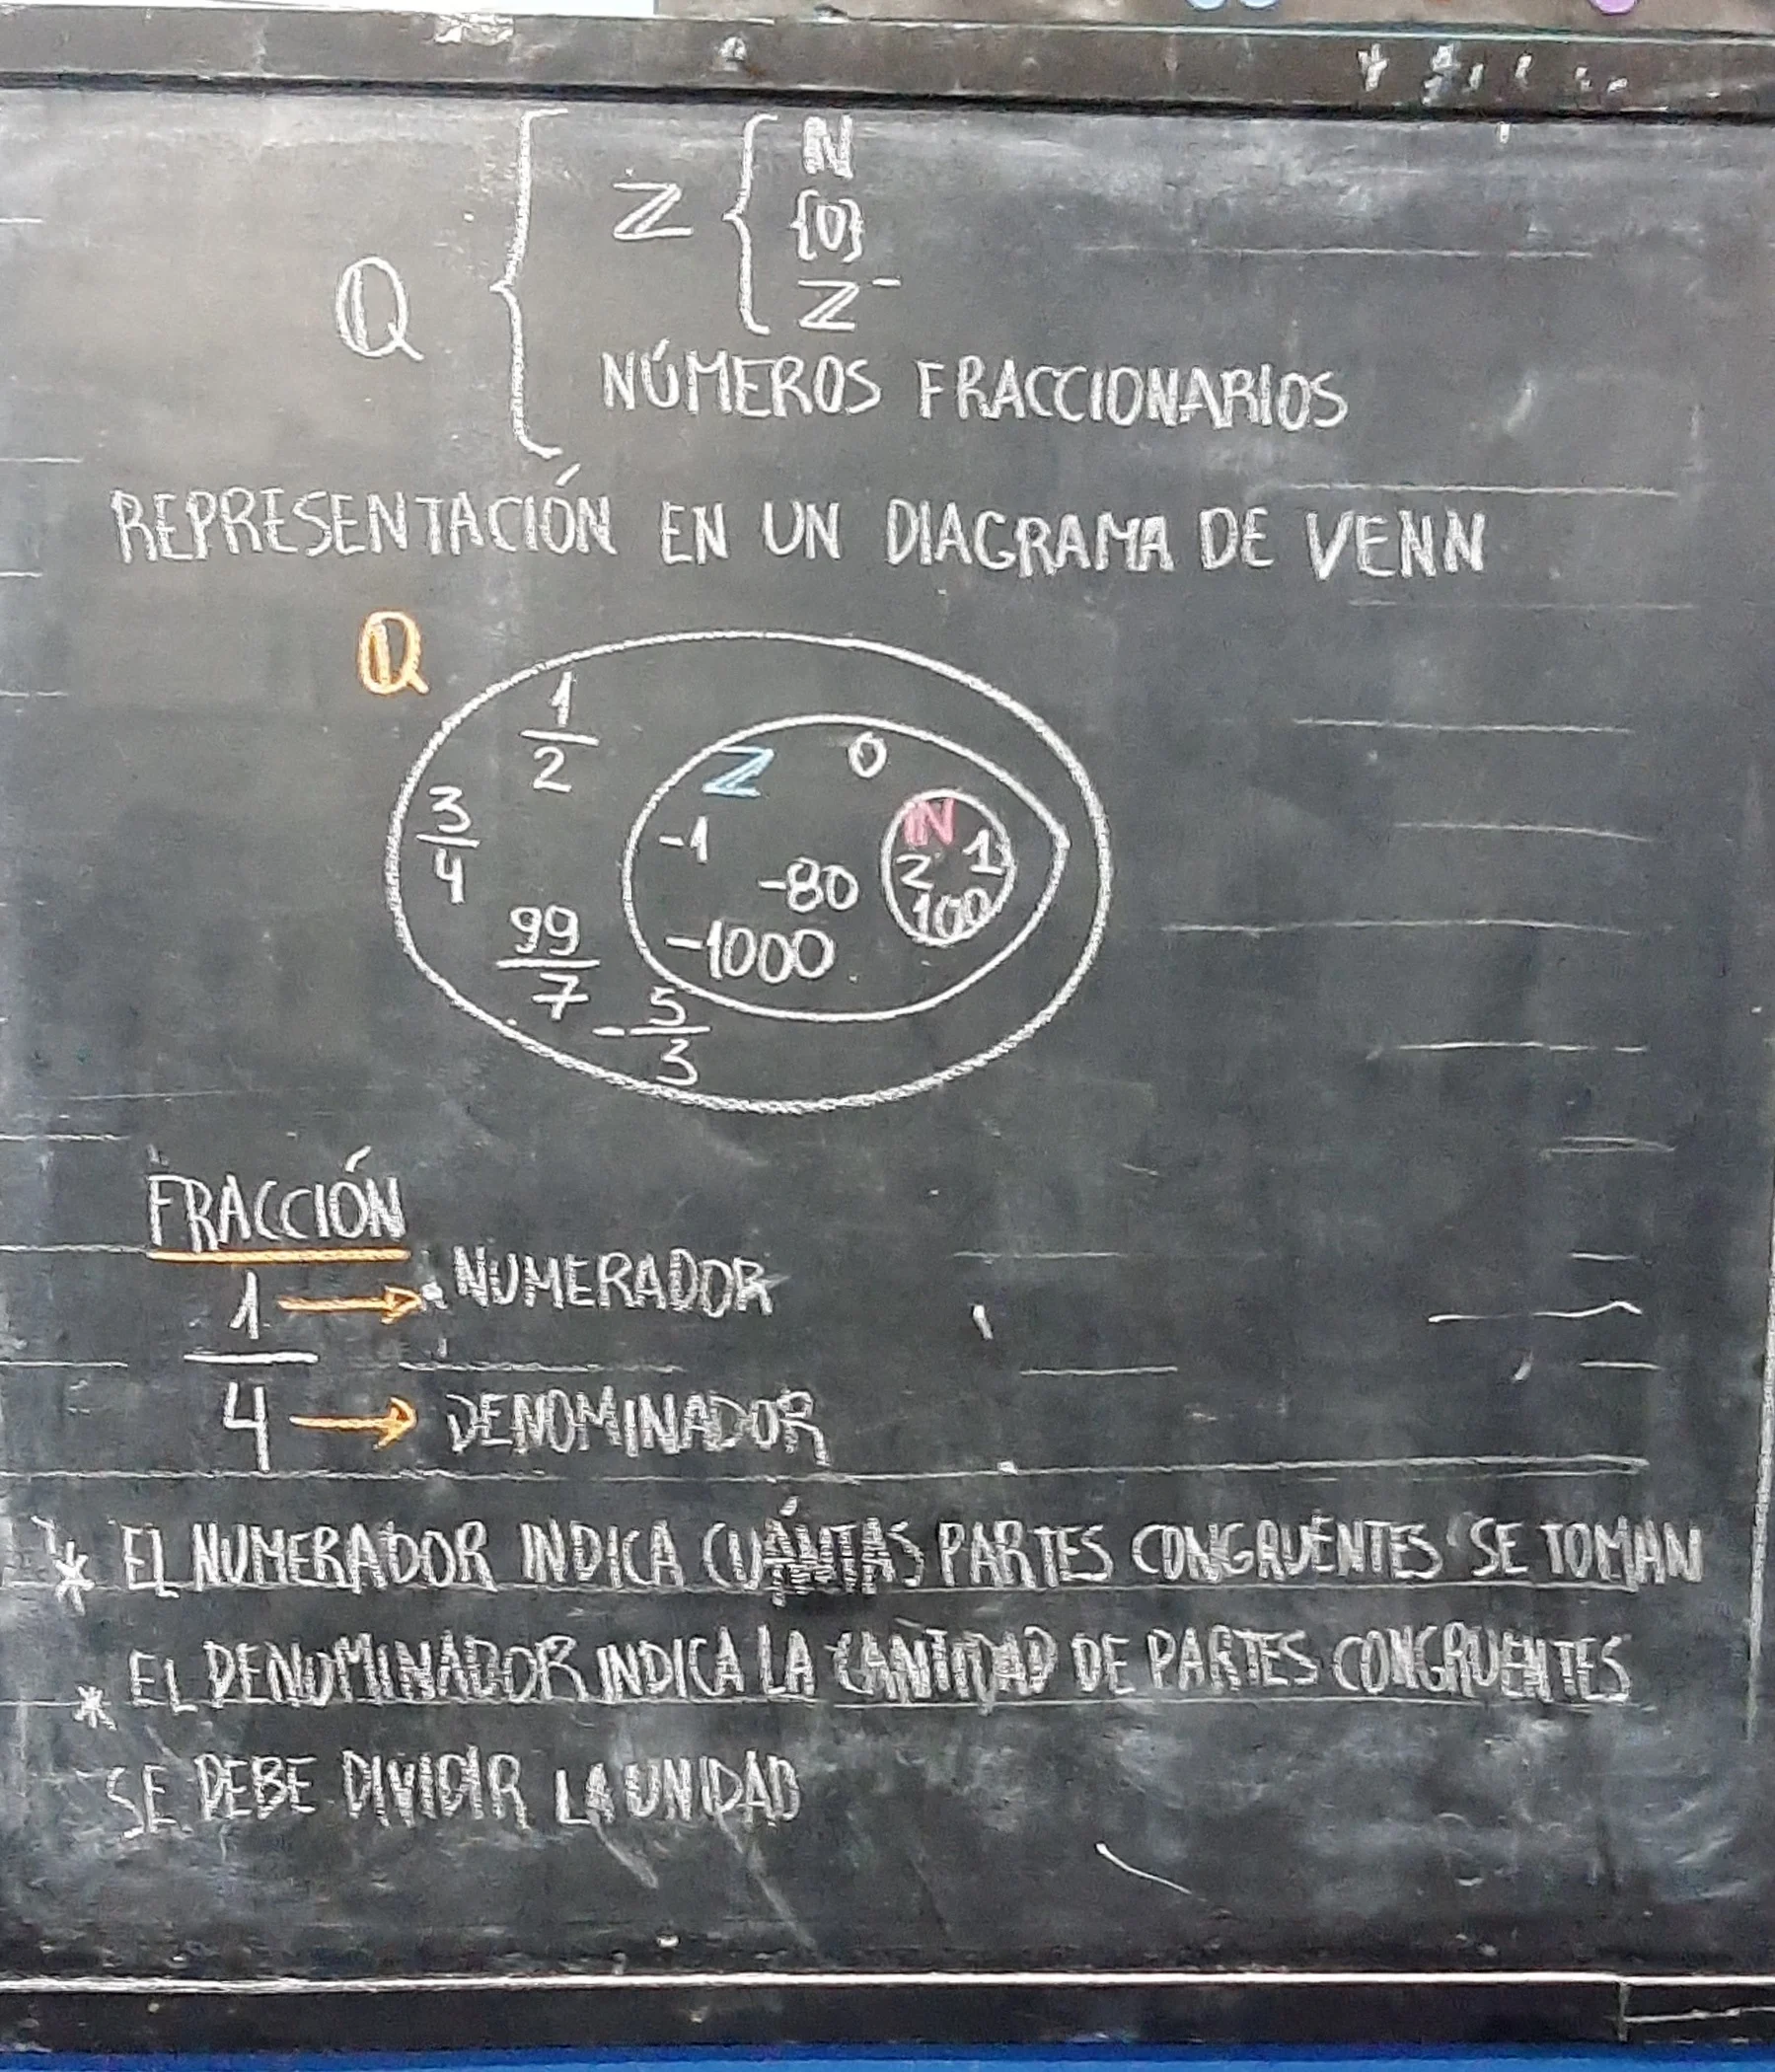 ℚ { ℤ { ℕ
{0}
ℤ⁻
NÚMEROS FRACCIONARIOS
REPRESENTACIÓN EN UN DIAGRAMA DE VENN
ℚ
1/2
ℤ 0
3/4
-1 ℕ
-80 2 1
100
99/7
-1000
-5/3
FRACCIÓN
1 → NUMERADOR
4 → DENOMINADOR
* EL NUMERADOR INDICA CUÁNTAS PARTES CONGRUENTES SE TOMAN
* EL DENOMINADOR INDICA LA CANTIDAD DE PARTES CONGRUENTES
SE DEBE DIVIDIR LA UNIDAD